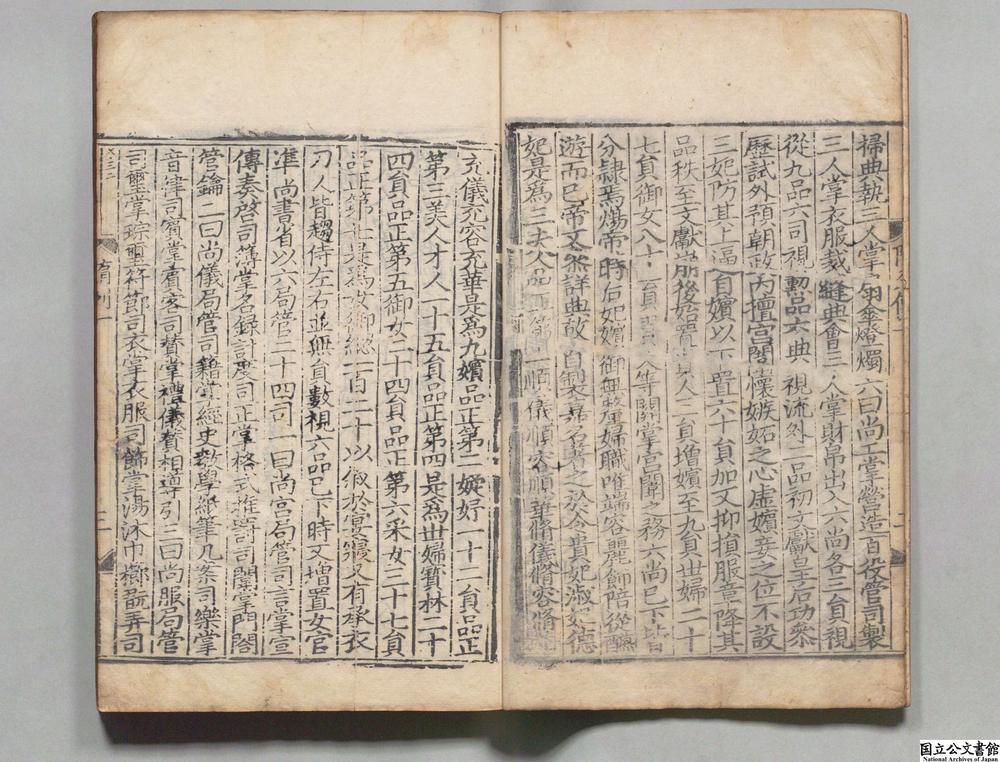 掃典執三人掌羽𦑢燈燭六曰尚工掌營造百役管司製
三人掌衣服裁縫典會三人掌財帛出入六尚各三員視
從九品六司視勳品六典視流外二品初文獻皇后功參
歷試外預朝政內擅宮闈懷嫉妬之心虛嬪妾之位不設
三妃防其上逼自嬪以下置六十員加又抑損服章降其
品秩至文獻崩後始置貴人三員增嬪至九員世婦二十
七員御女八十一員貴人等關掌宮闈之務六尚已下皆
分隸焉煬帝時后妃嬪御無釐婦職唯端容麗飾陪從醼
遊而已帝又參詳典故自製嘉名著之於令貴妃淑妃德
妃是爲三夫人品正第一順儀順容順華脩儀脩容脩華
充儀充容充華是爲九嬪品正第二婕妤一十二員品正
第三美人才人一十五員品正第四是爲世婦寶林二十
四員品正第五御女二十四員品正第六采女三十七員
品正第七是爲女御總一百二十以叙於宴寢又有承衣
刀人皆趨侍左右並無員數視六品已下時又增置女官
準尚書省以六局管二十四司一曰尚宮局管司言掌宣
傳奏啓司簿掌名録計度司正掌格式推罰司闈掌門閤
管鑰二曰尚儀局管司籍掌經史教學紙筆几案司樂掌
音律司賓掌賓客司贊掌禮儀贊相導引三曰尚服局管
司璽掌琮璽符節司衣掌衣服司飾掌湯沐巾櫛翫弄司
国立公文書館
National Archives of Japan